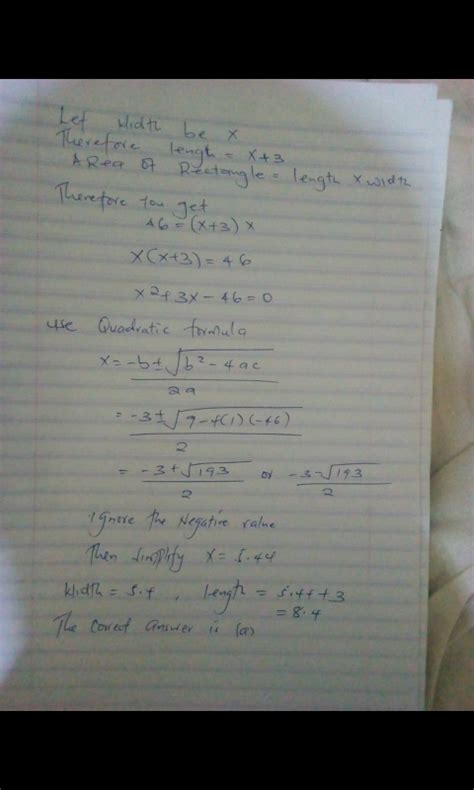 Let width be x
Therefore length = x+3
Area of Rectangle = length x width
Therefore you get
46 = (x+3) x
x(x+3) = 46
x² + 3x - 46 = 0
use Quadratic formula
x = -b ± √b² - 4ac / 2a
= -3 ± √9 - 4(1)(-46) / 2
= -3 + √193 / 2 or -3 - √193 / 2
ignore the Negative value
Then simplify x = 5.44
Width = 5.4, length = 5.44 + 3
= 8.4
The correct answer is (a)